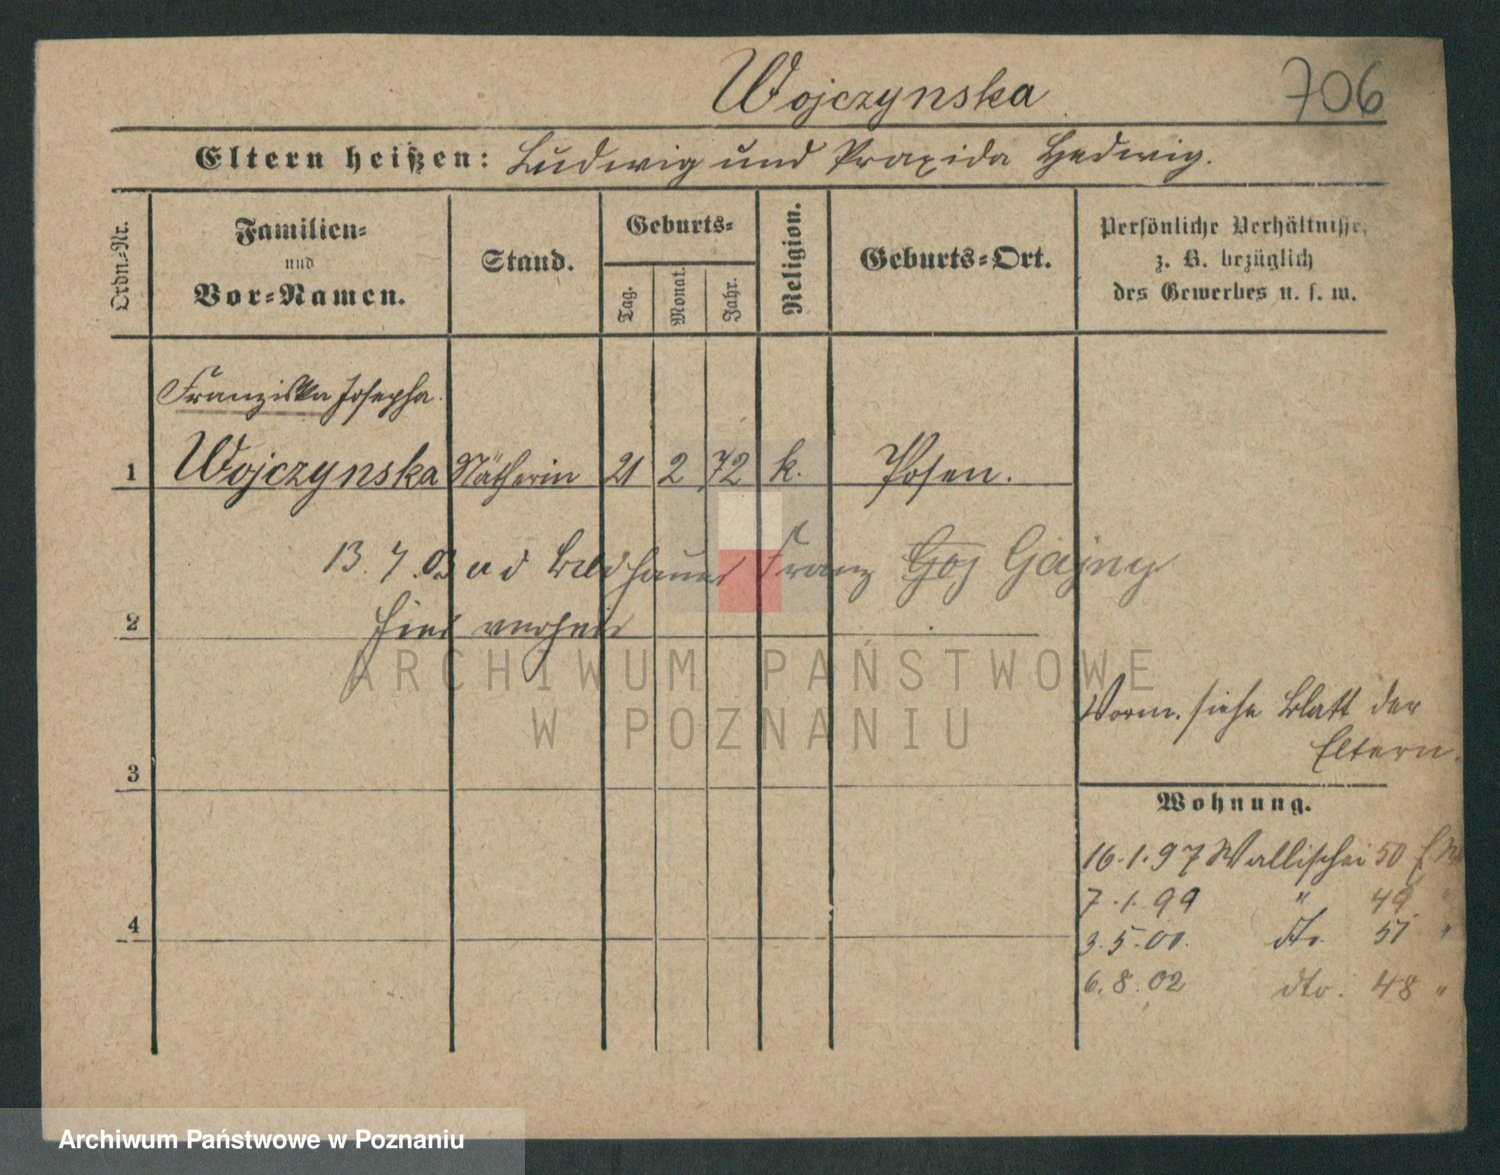 Wojczynska
706
Eltern heißen: Ludwig und Praxida Hedwig.
Ordn.-Nr.
Familien-
und
Vor-Namen.
Stand.
Geburts-
Tag.
Monat.
Jahr.
Religion.
Geburts-Ort.
Persönliche Verhältnisse,
z. B. bezüglich
des Gewerbes u. s. w.
Franziska Josepha.
1 Wojczynska Nätherin 21 2 72 k. Posen.
13. 7. 03 a d Bildhauer Franz
2 hier verheir
Vorm. siehe Blatt der
Eltern.
3
Wohnung.
16.1.97 Wallischei 50
7.1.99 " 49 "
3.5.01. dto. 51 "
4
6.8.02 dto. 48 "
ARCHIWUM PAŃSTWOWE
W POZNANIU
Archiwum Państwowe w Poznaniu